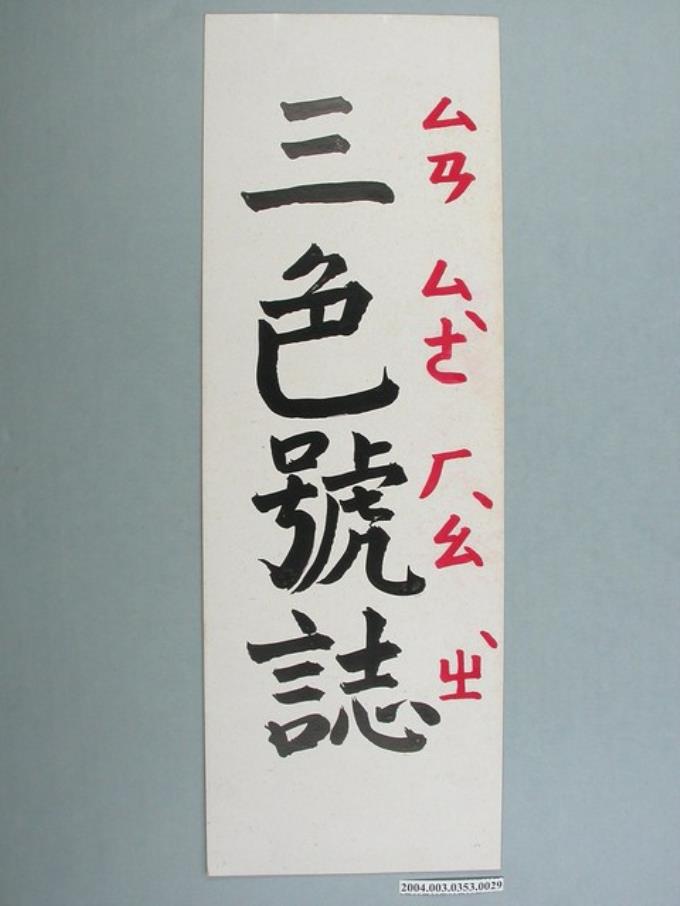 三色號誌
ㄙㄢ ㄙㄜˋ ㄏㄠˋ ㄓˋ
2004.003.0353.0029